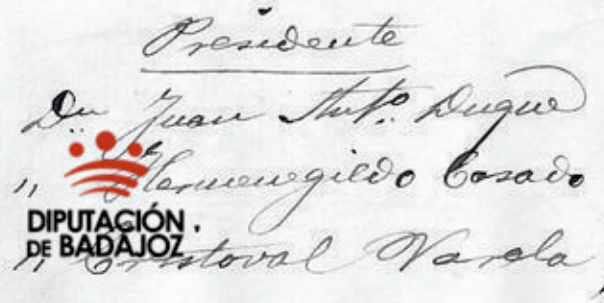 Presidente
Dn Juan Antº Duque
„ Hermenegildo Casado
DIPUTACIÓN
DE BADAJOZ
„ Cristoval Varela